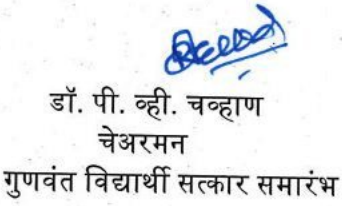 डॉ. पी. व्ही. चव्हाण
चेअरमन
गुणवंत विद्यार्थी सत्कार समारंभ